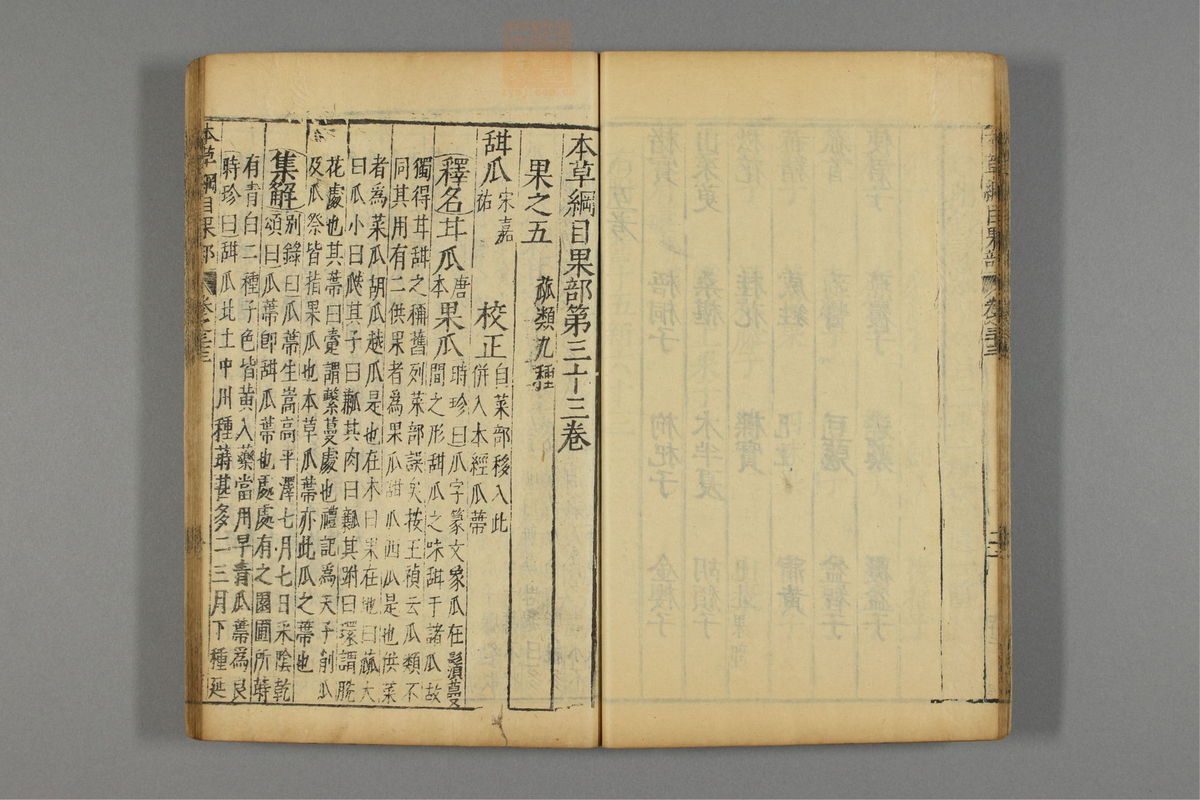 本草綱目果部第三十三卷
果之五 蓏類九種
甜瓜 宋嘉祐 校正 自菜部移入此併入本經瓜蒂
釋名 甘瓜 唐本 果瓜 時珍曰瓜字篆文象瓜在鬚蔓
間之形甜瓜之味甜于諸瓜故
獨得甘甜之稱舊列菜部誤矣按王禎云瓜類不
同其用有二供果者為果瓜甜瓜西瓜是也供菜
者為菜瓜胡瓜越瓜是也在木曰果在地曰蓏大
曰瓜小曰瓞其子曰㼓其肉曰瓤其跗曰環謂脫
花處也其蒂曰疐謂繫蔓處也禮記為天子削瓜
及瓜祭皆指果瓜也本草瓜蒂亦此瓜之蒂也
集解 别錄曰瓜蒂生嵩高平澤七月七日采陰乾
頌曰瓜蒂即甜瓜蒂也處處有之園圃所蒔
有青白二種子色皆黃入藥當用早青瓜蒂為良
時珍曰甜瓜北土中州種蒔甚多二三月下種延
本草綱目果部 卷之三三